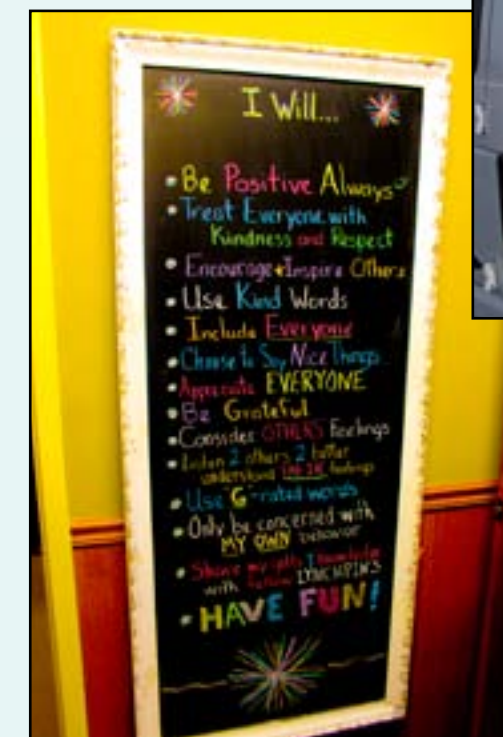 I Will...
• Be Positive Always
• Treat Everyone with
Kindness and Respect
• Encourage + Inspire Others
• Use Kind Words
• Include Everyone
• Choose to Say Nice Things
• Appreciate EVERYONE
• Be Grateful
• Consider OTHERS Feelings
• Listen 2 others 2 better
understand THEIR feelings
• Use "G"-rated words
• Only be concerned with
MY OWN behavior
• Share my gifts & knowledge
with fellow LYNCHPINS
• HAVE FUN!